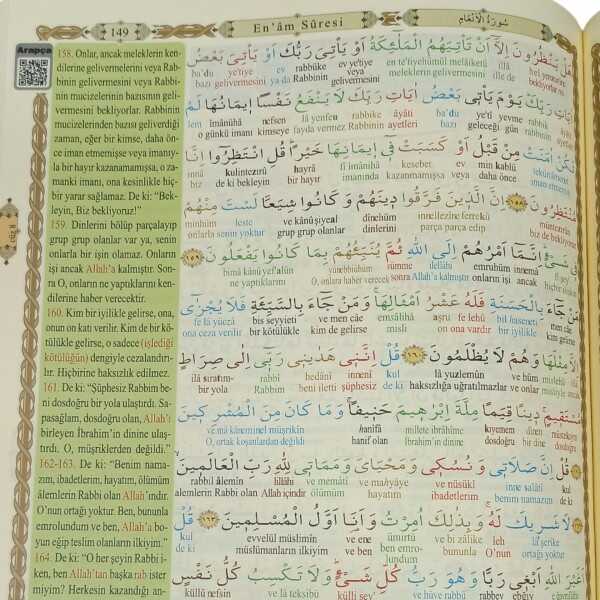 149
En'âm Sûresi
سُورَةُ الْاَنْعَامِ
Arapça
158. Onlar, ancak meleklerin ken-
dilerine gelivermelerini veya Rab-
binin gelivermesini veya Rabbi-
nin mucizelerinin bazısının geli-
vermesini bekliyorlar. Rabbinin
mucizelerinden bazısı geliverdiği
zaman, eğer bir kimse, daha ön-
ce iman etmemişse veya imanıy-
la bir hayır kazanamamışsa, o za-
manki imanı, ona kesinlikle hiç-
bir yarar sağlamaz. De ki: "Bek-
leyin, Biz bekliyoruz!"
159. Dinlerini bölüp parçalayıp
grup grup olanlar var ya, senin
onlarla bir işin olamaz. Onların
işi ancak Allah'a kalmıştır. Son-
ra O, onların ne yaptıklarını ken-
dilerine haber verecektir.
160. Kim bir iyilikle gelirse, ona,
onun on katı verilir. Kim de bir kö-
tülükle gelirse, o sadece (işlediği
kötülüğün) dengiyle cezalandırı-
lır. Hiçbirine haksızlık edilmez.
161. De ki: "Şüphesiz Rabbim be-
ni dosdoğru bir yola ulaştırdı. Sa-
pasağlam, dosdoğru olan, Allah'ı
birleyen İbrahim'in dinine ulaş-
tırdı. O, müşriklerden değildi."
162-163. De ki: "Benim nama-
zım, ibadetlerim, hayatım, ölümüm
âlemlerin Rabbi olan Allah'ındır.
O'nun ortağı yoktur. Ben, bununla
emrolundum ve ben, Allah'a bo-
yun eğip teslim olanların ilkiyim."
164. De ki: "O her şeyin Rabbi i-
ken, ben Allah'tan başka rab ister
miyim? Herkesin kazandığı an-
هَلْ يَنْظُرُونَ اِلَّٓا اَنْ تَأْتِيَهُمُ الْمَلٰٓئِكَةُ اَوْ يَأْتِيَ رَبُّكَ اَوْ يَأْتِيَ بَعْضُ
ba'du ye'tiye ev rabbüke ev ye'tiye en te'tiyehümül melâiketü illâ hel yenzurûne
bazı gelivermesini ya da Rabbinin gelivermesini veya meleklerin gelivermesini ille de
اٰيَاتِ رَبِّكَ يَوْمَ يَأْتِي بَعْضُ اٰيَاتِ رَبِّكَ لَا يَنْفَعُ نَفْسًا اِيمَانُهَا لَمْ
lem îmânühâ nefsen lâ yenfeu rabbike âyâti ba'du ye'tî yevme rabbike âyâti
o günkü imanı kimseye fayda vermez Rabbinin ayetleri bazı geleceği gün rabbinin
تَكُنْ اٰمَنَتْ مِنْ قَبْلُ اَوْ كَسَبَتْ فِي اِيمَانِهَا خَيْرًا قُلِ انْتَظِرُوا اِنَّا
innâ kulintezırû hayrâ fî îmânihâ kesebet ev min kablü
biz de ki bekleyin bir hayır imanında kazanmamışsa veya daha önce
مُنْتَظِرُونَ ﴿١٥٨﴾ اِنَّ الَّذِينَ فَرَّقُوا دِينَهُمْ وَكَانُوا شِيَعًا لَسْتَ مِنْهُمْ
minhüm leste ve kânû şiyeal dînehüm innellezîne ferrekû
onlarla senin yoktur grup grup olanlar dinlerini parça parça edip
فِي شَيْءٍ اِنَّمَٓا اَمْرُهُمْ اِلَى اللّٰهِ ثُمَّ يُنَبِّئُهُمْ بِمَا كَانُوا يَفْعَلُونَ ﴿١٥٩﴾
bimâ kânû yef'alûn yünebbiühüm sümme ilellâhi emruhüm innemâ
ne yaptıklarını O, onlara haber verecek sonra Allah'a kalmıştır onların işi ancak
مَنْ جَٓاءَ بِالْحَسَنَةِ فَلَهُ عَشْرُ اَمْثَالِهَا وَمَنْ جَٓاءَ بِالسَّيِّئَةِ فَلَا يُجْزٰٓى
fe lâ yüczâ bis seyyieti ve men câe emsâlihâ aşru fe lehû bil haseneti men câe
ona ceza verilir bir kötülükle kim de gelirse misli on ona vardır bir iyilikle kim gelirse
اِلَّا مِثْلَهَا وَهُمْ لَا يُظْلَمُونَ ﴿١٦٠﴾ قُلْ اِنَّنِي هَدٰينِي رَبِّٓي اِلٰى صِرَاطٍ
ilâ sırâtın- rabbî hedânî innenî kul lâ yuzlemûn ve hüm
bir yola Rabbim beni iletti şüphesiz de ki haksızlığa uğratılmazlar ve onlar
مُسْتَقِيمٍ دِينًا قِيَمًا مِلَّةَ اِبْرٰهِيمَ حَنِيفًا وَمَا كَانَ مِنَ الْمُشْرِكِينَ
ve mâ kâne minel müşrikîn hanîfâ millete ibrâhîme kıyemen dînen
O, ortak koşanlardan değildi hanif olan İbrahim'in dinine dosdoğru bir dine
قُلْ اِنَّ صَلَاتِي وَنُسُكِي وَمَحْيَايَ وَمَمَاتِي لِلّٰهِ رَبِّ الْعَالَمِينَ
rabbil âlemîn lillâhi ve memâtî ve mahyâye ve nüsükî inne salâtî kul
alemlerin Rabbi olan Allah içindir ölümüm hayatım ibadetlerim benim namazım de ki
لَا شَرِيكَ لَهُ وَبِذٰلِكَ اُمِرْتُ وَاَنَا اَوَّلُ الْمُسْلِمِينَ ﴿١٦٣﴾ قُلْ
kul evvelül müslimîn ve ene ümirtü ve bi zâlike leh lâ şerîke
de ki müslümanların ilkiyim ve ben ben emrolundum bununla O'nun ortağı yoktur
اَغَيْرَ اللّٰهِ اَبْغِي رَبًّا وَهُوَ رَبُّ كُلِّ شَيْءٍ وَلَا تَكْسِبُ كُلُّ نَفْسٍ
küllü nefsin ve lâ teksibü külli şey' ve hüve rabbü